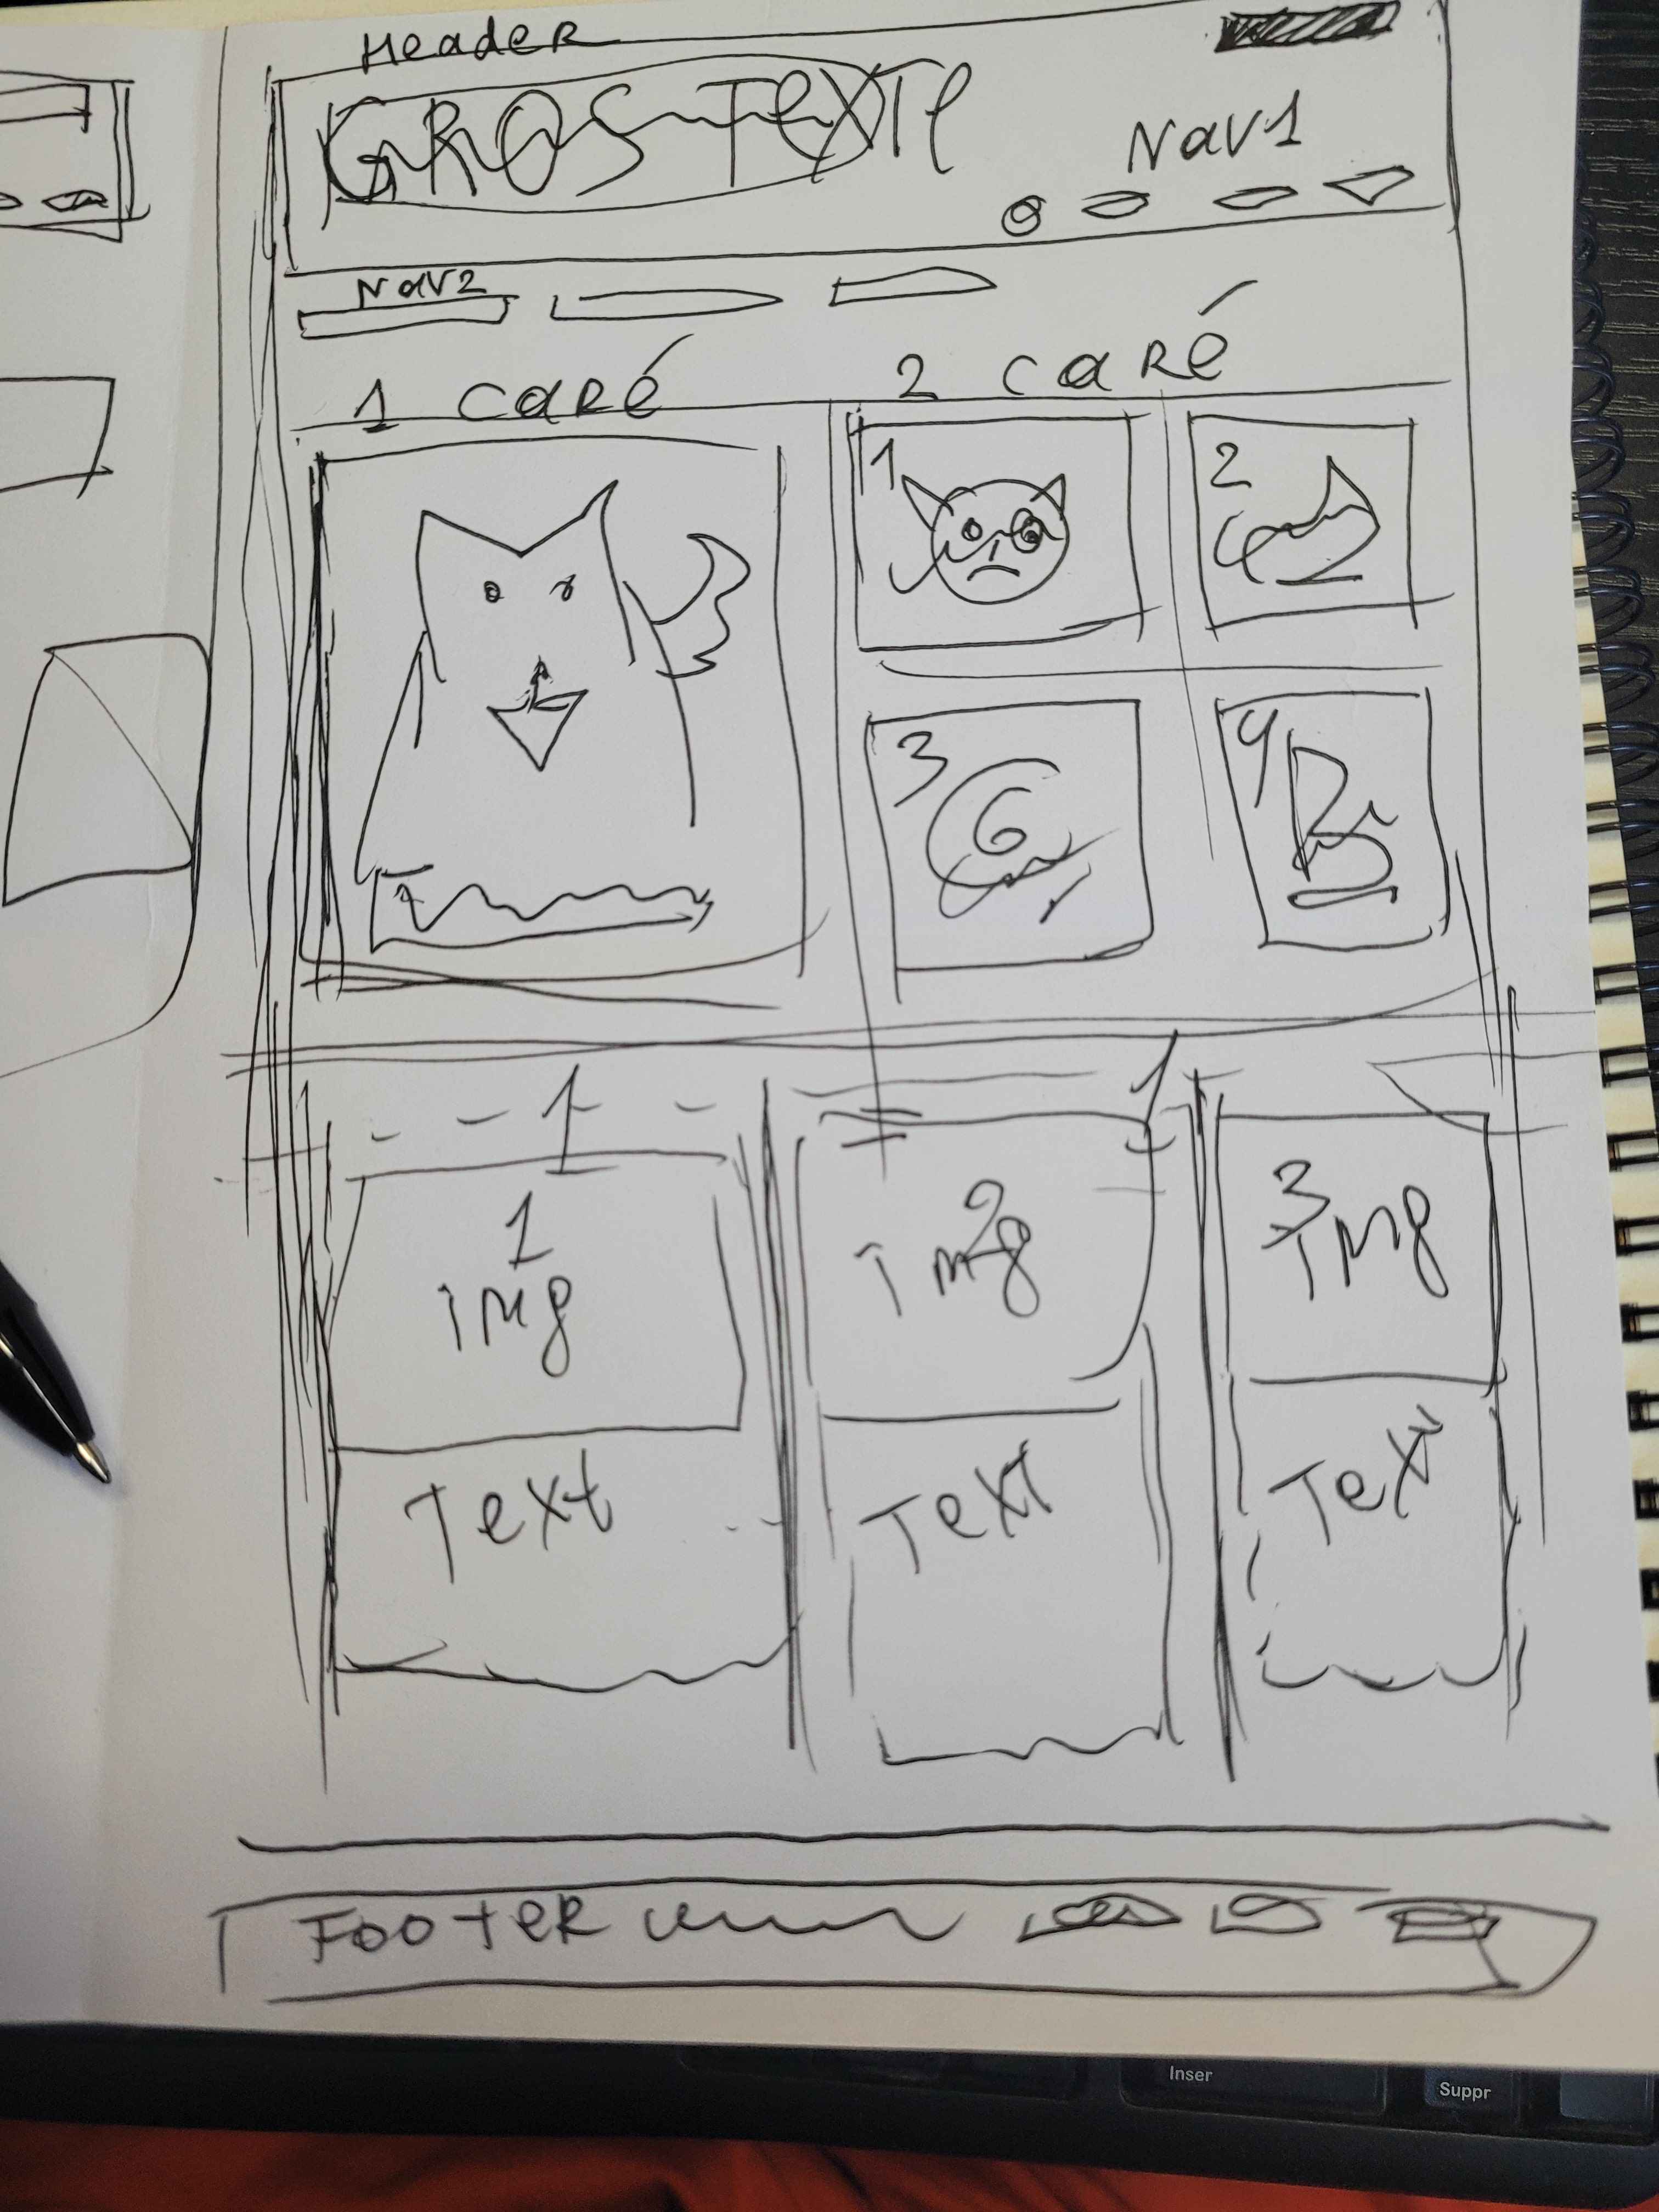 Header
GROS TEXTE
Nav1
Nav2
1 caré
2 caré
1
2
3
4
1
1
1
img
2
img
3
img
Text
Text
Text
FOOTER
Inser
Suppr